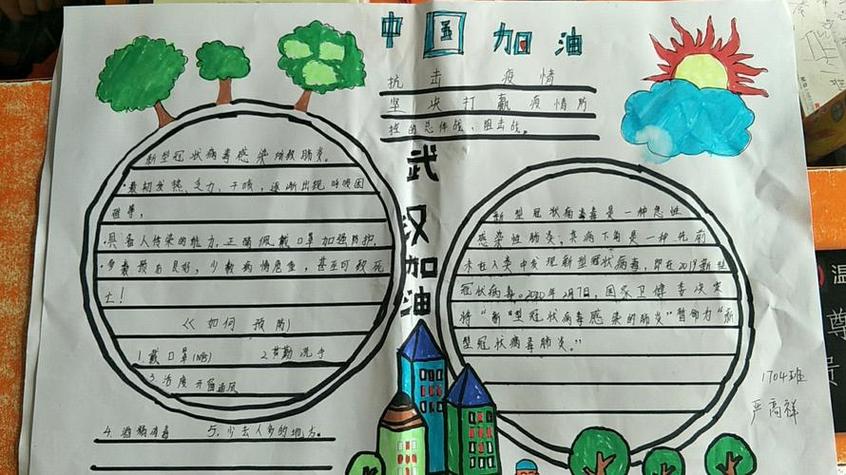 中国加油
抗击疫情
坚决打赢疫情防
控的总体战、阻击战。
武汉加油
新型冠状病毒感染的肺炎。
·最初发热、乏力、干咳,逐渐出现呼吸困
难等,
·具备人传染的能力,正确佩戴口罩加强防护.
·多数预后良好,少数病情危重,甚至可致死
亡!
《《如何预防》
1.戴口罩(N95) 2.要勤洗手
3.适度开窗通风
4.酒精消毒 5.少去人多的地方。
新型冠状病毒毒是一种急性
感染性肺炎,其病
是一种先前
未在人类中发现新型冠状病毒,即在2019新型
冠状病毒。2020年2月7日,国家卫健委决定
将“新”型冠状病毒感染的肺炎”暂命为“新
型冠状病毒肺炎。”
1704班
严高祥
温
尊
贵